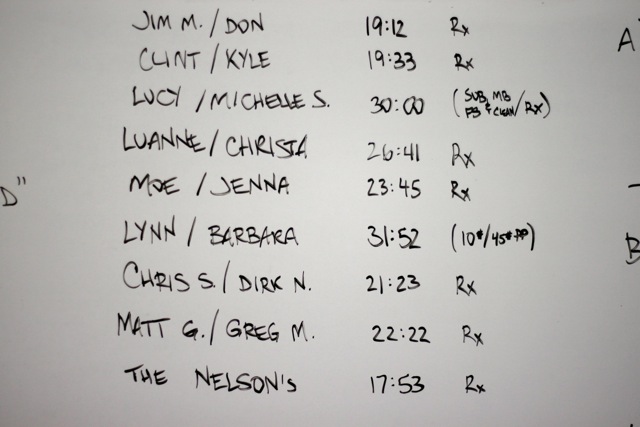 JIM M. / DON 19:12 Rx
CLINT / KYLE 19:33 Rx
LUCY / MICHELLE S. 30:00 (SUB MB PB & CLEAN/RX)
LUANNE / CHRISTA 26:41 Rx
MOE / JENNA 23:45 Rx
D"
LYNN / BARBARA 31:52 (10#/45# PP)
CHRIS S. / DIRK N. 21:23 Rx
MATT G. / GREG M. 22:22 Rx
THE NELSON'S 17:53 Rx
A
B